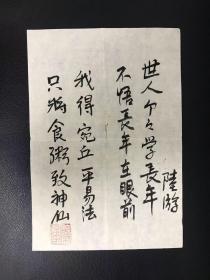 陸游
世人个々学長年
不悟長年在眼前
我得宛丘平易法
只将食粥致神仙